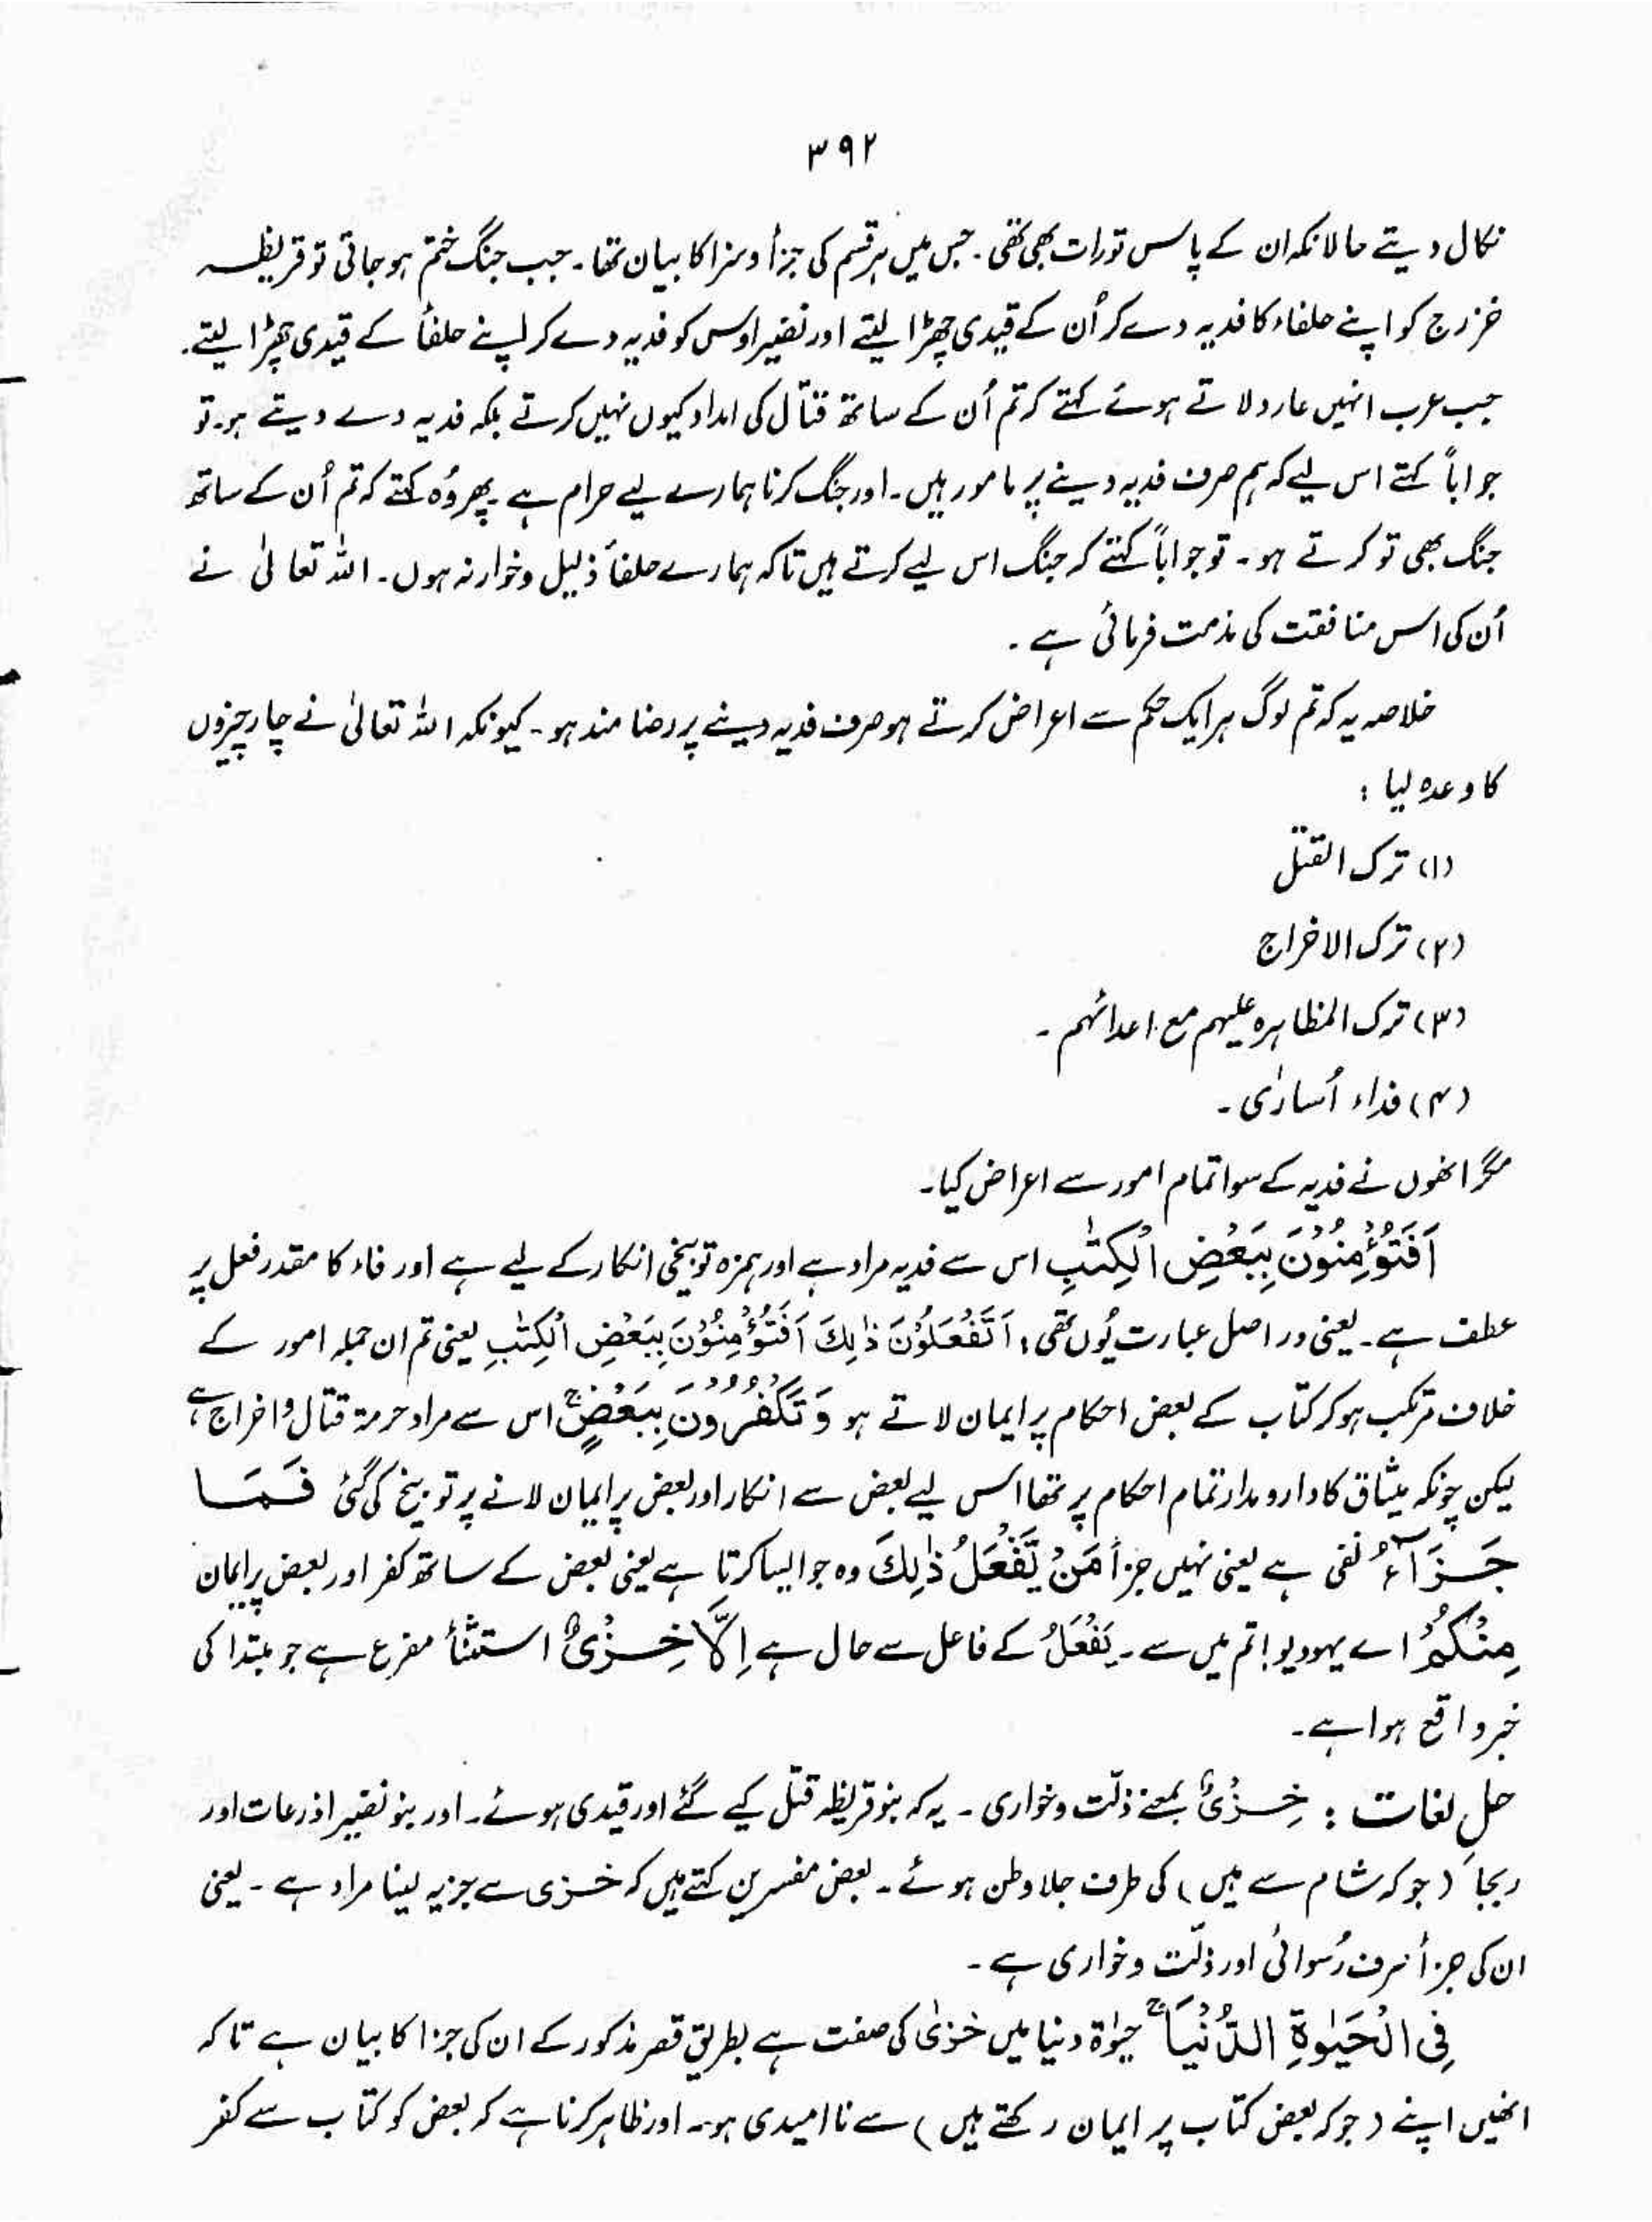 ۳۹۲
نکال دیتے حالانکہ ان کے پاس تورات بھی تھی۔ جس میں ہر قسم کی جزأ و سزا کا بیان تھا۔ جب جنگ ختم ہو جاتی تو قریظہ
خزرج کو اپنے حلفاء کا فدیہ دے کر اُن کے قیدی چھڑا لیتے اور نضیر اوس کو فدیہ دے کر اپنے حلفأ کے قیدی چھڑا لیتے۔
جب عرب انہیں عار دلاتے ہوئے کہتے کہ تم اُن کے ساتھ قتال کی امداد کیوں نہیں کرتے بلکہ فدیہ دے دیتے ہو۔ تو
جواباً کہتے اس لیے کہ ہم صرف فدیہ دینے پر مامور ہیں۔ اور جنگ کرنا ہمارے لیے حرام ہے۔ پھر وُہ کہتے کہ تم اُن کے ساتھ
جنگ بھی تو کرتے ہو۔ تو جواباً کہتے کہ جنگ اس لیے کرتے ہیں تاکہ ہمارے حلفأ ذلیل و خوار نہ ہوں۔ اللہ تعالیٰ نے
اُن کی اس منافقت کی مذمت فرمائی ہے۔
خلاصہ یہ کہ تم لوگ ہر ایک حکم سے اعراض کرتے ہو صرف فدیہ دینے پر رضا مند ہو۔ کیونکہ اللہ تعالیٰ نے چار چیزوں
کا وعدہ لیا :
(۱) ترک القتل
(۲) ترک الاخراج
(۳) ترک المظاہرہ علیہم مع اعدائہم۔
(۴) فداء اُسارٰی۔
مگر انھوں نے فدیہ کے سوا تمام امور سے اعراض کیا۔
اَفَتُؤْمِنُوْنَ بِبَعْضِ الْكِتٰبِ اس سے فدیہ مراد ہے اور ہمزہ توبیخی انکار کے لیے ہے اور فاء کا مقدر فعل پر
عطف ہے۔ یعنی در اصل عبارت یُوں تھی : اَتَفْعَلُوْنَ ذٰلِكَ اَفَتُؤْمِنُوْنَ بِبَعْضِ الْكِتٰبِ یعنی تم ان جملہ امور کے
خلاف مرتکب ہو کر کتاب کے بعض احکام پر ایمان لاتے ہو وَتَكْفُرُوْنَ بِبَعْضٍ ج اس سے مراد حرمۃ قتال و اخراج ہے،
لیکن چونکہ میثاق کا دار و مدار تمام احکام پر تھا اس لیے بعض سے انکار اور بعض پر ایمان لانے پر توبیخ کی گئی فَمَا
جَزَآءُ نفی ہے یعنی نہیں جزأ مَنْ يَّفْعَلُ ذٰلِكَ وہ جو ایسا کرتا ہے یعنی بعض کے ساتھ کفر اور بعض پر ایمان
مِنْكُمْ اے یہودیو! تم میں سے۔ يَفْعَلُ کے فاعل سے حال ہے اِلَّا خِزْيٌ استثنأ مفرغ ہے جو مبتدا کی
خبر واقع ہوا ہے۔
حل لغات : خِزْيٌ بمعنے ذلّت و خواری۔ یہ کہ بنو قریظہ قتل کیے گئے اور قیدی ہوئے۔ اور بنو نضیر اذرعات اور
(جو کہ شام سے ہیں) کی طرف جلا وطن ہوئے۔ بعض مفسرین کہتے ہیں کہ خزی سے جزیہ لینا مراد ہے۔ یعنی
ان کی جزأ صرف رُسوائی اور ذلّت و خواری ہے۔
فِى الْحَيٰوةِ الدُّنْيَا ج حیوٰۃ دنیا میں خزیٌ کی صفت ہے بطریق قصر مذکور کے ان کی جزا کا بیان ہے تاکہ
انھیں اپنے (جو کہ بعض کتاب پر ایمان رکھتے ہیں) سے ناامیدی ہو۔ اور ظاہر کرنا ہے کہ بعض کو کتاب سے کفر